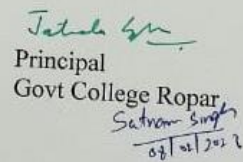 Principal
Govt College Ropar
Satnam Singh
08/02/2023